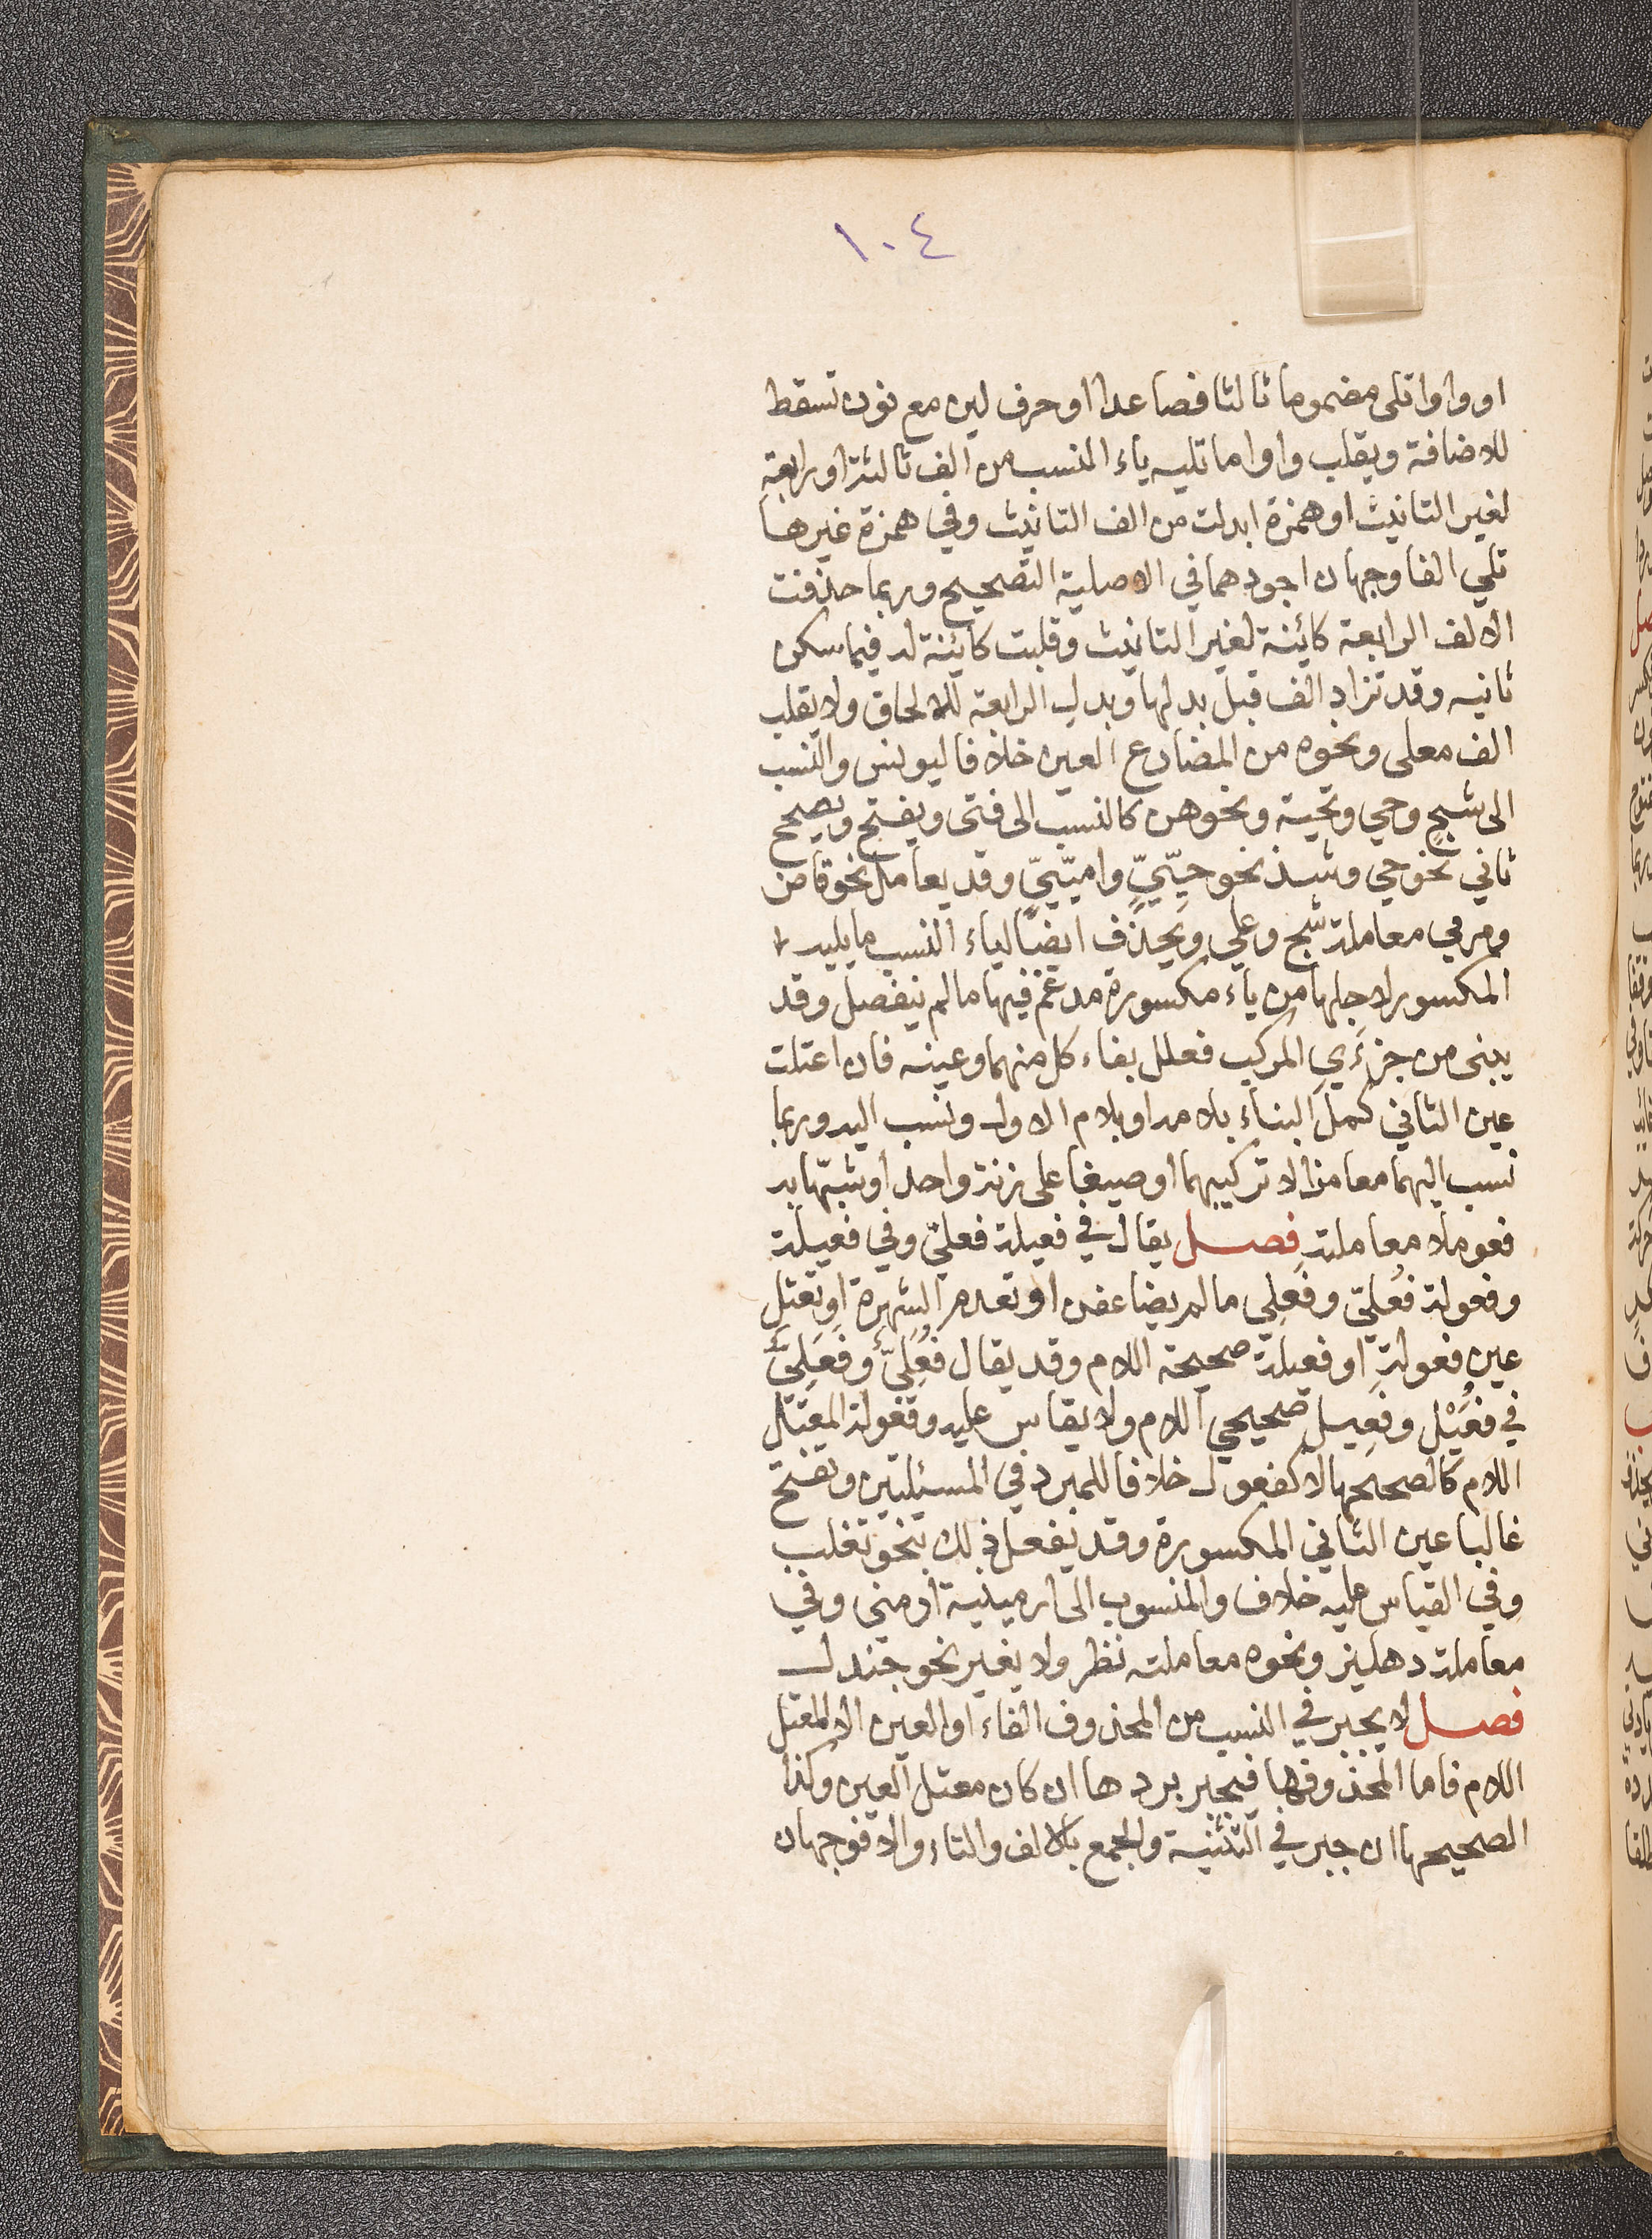 ١٠٤
او واوا تلى مضموما ثالثا فصاعدا او حرف لين مع نون تسقط
للاضافة ويقلب واوا ما تليه ياء النسب من الف ثالثة او رابعة
لغير التانيث او همزة ابدلت من الف التانيث وفي همزة غيرها
تلي الفا وجهان اجودهما في الاصلية التصحيح وربما حذفت
الالف الرابعة كائنة لغير التانيث وقلبت كائنة له فيما سكن
ثانيه وقد تزاد الف قبل بدلها وبدل الرابعة للالحاق ولا يقلب
الف معلى ونحوه من المضارع العين خلافا ليونس والنسب
الى شج وحي وتحية ونحوهن كالنسب الى فتى ويفتح ويصحح
ثاني نحو حي وشذ نحو حيّيّ واميّيّ وقد يعامل نحو قاض
ومرمي معاملة شج وعلي ويحذف ايضا لياء النسب ما يليه
المكسور لاجلها من ياء مكسورة مدغم فيها ما لم ينفصل وقد
يبنى من جزءي المركب فعلل بفاء كل منهما وعينه فان اعتلت
عين الثاني كمل البناء بلامه او بلام الاول ونسب اليه وربما
نسب اليهما معا مزالا تركيبهما او صيغا على زنة واحد او شبّها به
فعوملا معاملته فصل يقال في فعيلة فعلي وفي فعيلة
وفعولة فُعليّ وفَعلي ما لم يضاعفن او تعدم الشهرة او تعتل
عين فعولة او فعيلة صحيحة اللام وقد يقال فُعَليّ وفَعَليّ
في فُعَيْل وفَعِيل صحيحي اللام ولا يقاس عليه وفعولة المعتل
اللام كالصحيحها لا كفعول خلافا للمبرد في المسئلتين وتفتح
غالبا عين الثاني المكسورة وقد يفعل ذلك بنحو تغلب
وفي القياس عليه خلاف والمنسوب الى ارمينية ارمني وفي
معاملة دهليز ونحوه معاملته نظر ولا يغير نحو جندل
فصل لا يجبر في النسب من المحذوف الفاء او العين الا المعتل
اللام فاما المحذوفها فيجبر بردها ان كان معتل العين وكذا
الصحيحها ان جبر في التثنية والجمع بالالف والتاء والا فوجهان